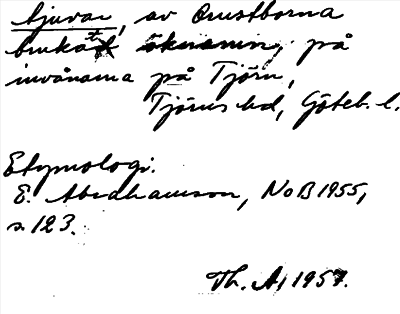 tjuvar, av Orustborna
brukat öknamn på
invånarna på Tjörn,
Tjörns hd, Göteb. l.
Etymologi:
E. Abrahamson, NoB 1955,
s. 123.
Th. A, 1957.